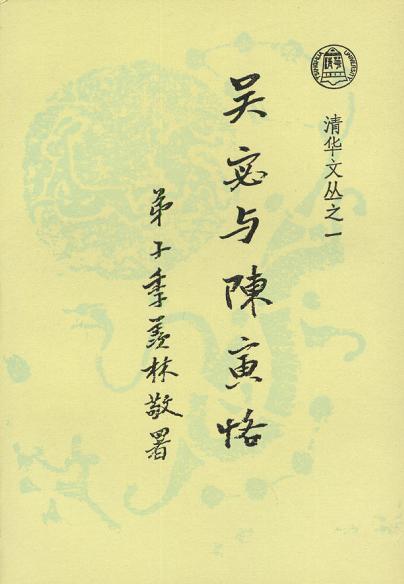 清华文丛之一
吴宓与陳寅恪
弟子季羡林敬署